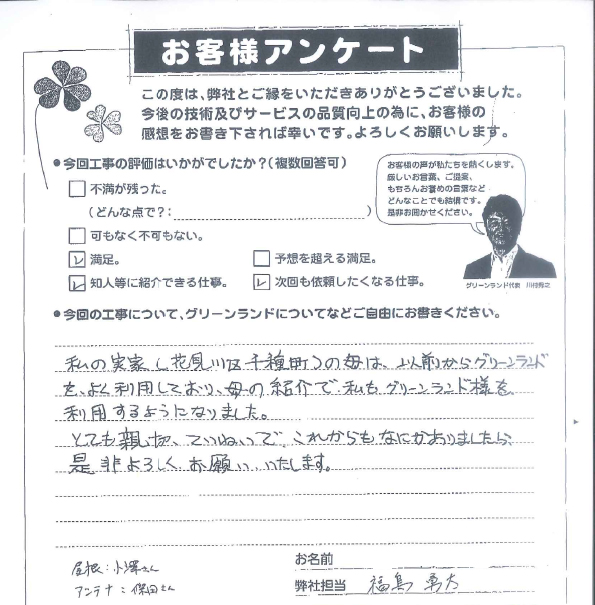 お客様アンケート
この度は、弊社とご縁をいただきありがとうございました。
今後の技術及びサービスの品質向上の為に、お客様の
感想をお書き下されば幸いです。よろしくお願いします。
●今回工事の評価はいかがでしたか?(複数回答可)
不満が残った。
(どんな点で?: )
可もなく不可もない。
満足。
予想を超える満足。
知人等に紹介できる仕事。
次回も依頼したくなる仕事。
お客様の声が私たちを動くします。
厳しいお言葉、ご提案、
もちろんお褒めの言葉など
どんなことでも結構です。
是非お聞かせください。
グリーンランド代表
●今回の工事について、グリーンランドについてなどご自由にお書きください。
私の実家(花見川区千種町)の母は、以前からグリーンランド
を、よく利用しており、母の紹介で私もグリーンランド様を
利用するようになりました。
とても親切、ていねいで、これからもなにかありましたら、
是非よろしく、お願い、いたします。
屋根:小澤さん
アンテナ:保田さん
お名前
弊社担当 福島 勇太